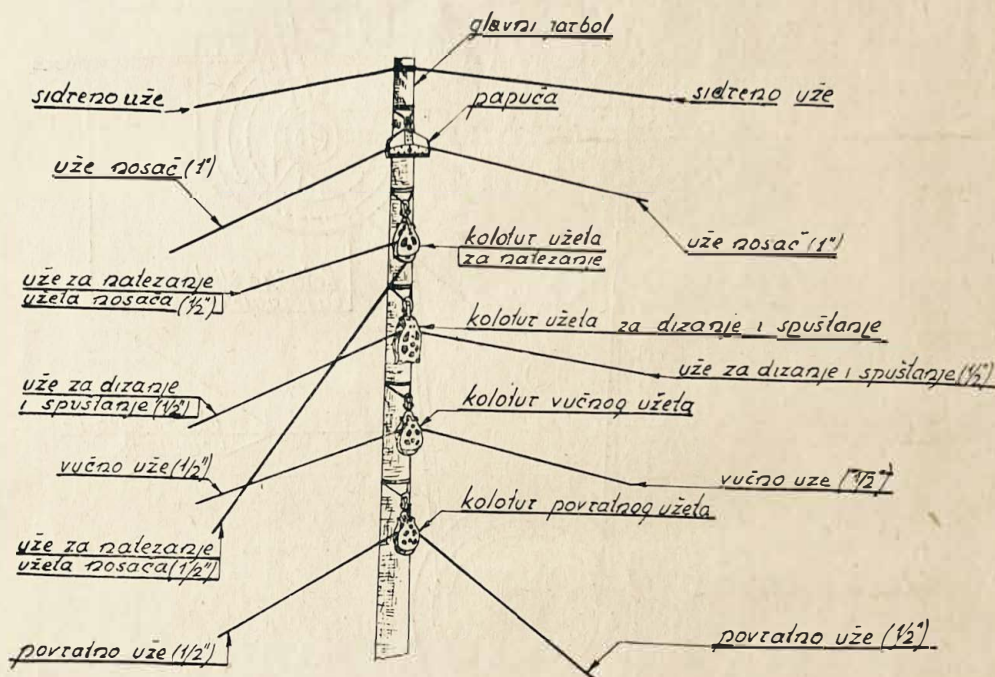 glavni jarbol
sidreno uže
sidreno uže
papuča
uže nosač (1")
uže nosač (1")
kolotur užeta
za natezanje
uže za natezanje
užeta nosača (1/2")
kolotur užeta za dizanje i spuštanje
uže za dizanje i spuštanje (1/2")
uže za dizanje
i spuštanje (1/2")
kolotur vučnog užeta
vučno uže (1/2")
vučno uze (1/2")
kolotur povratnog užeta
uže za natezanje
užeta nosača (1/2")
povratno uže (1/2")
povratno uže (1/2")